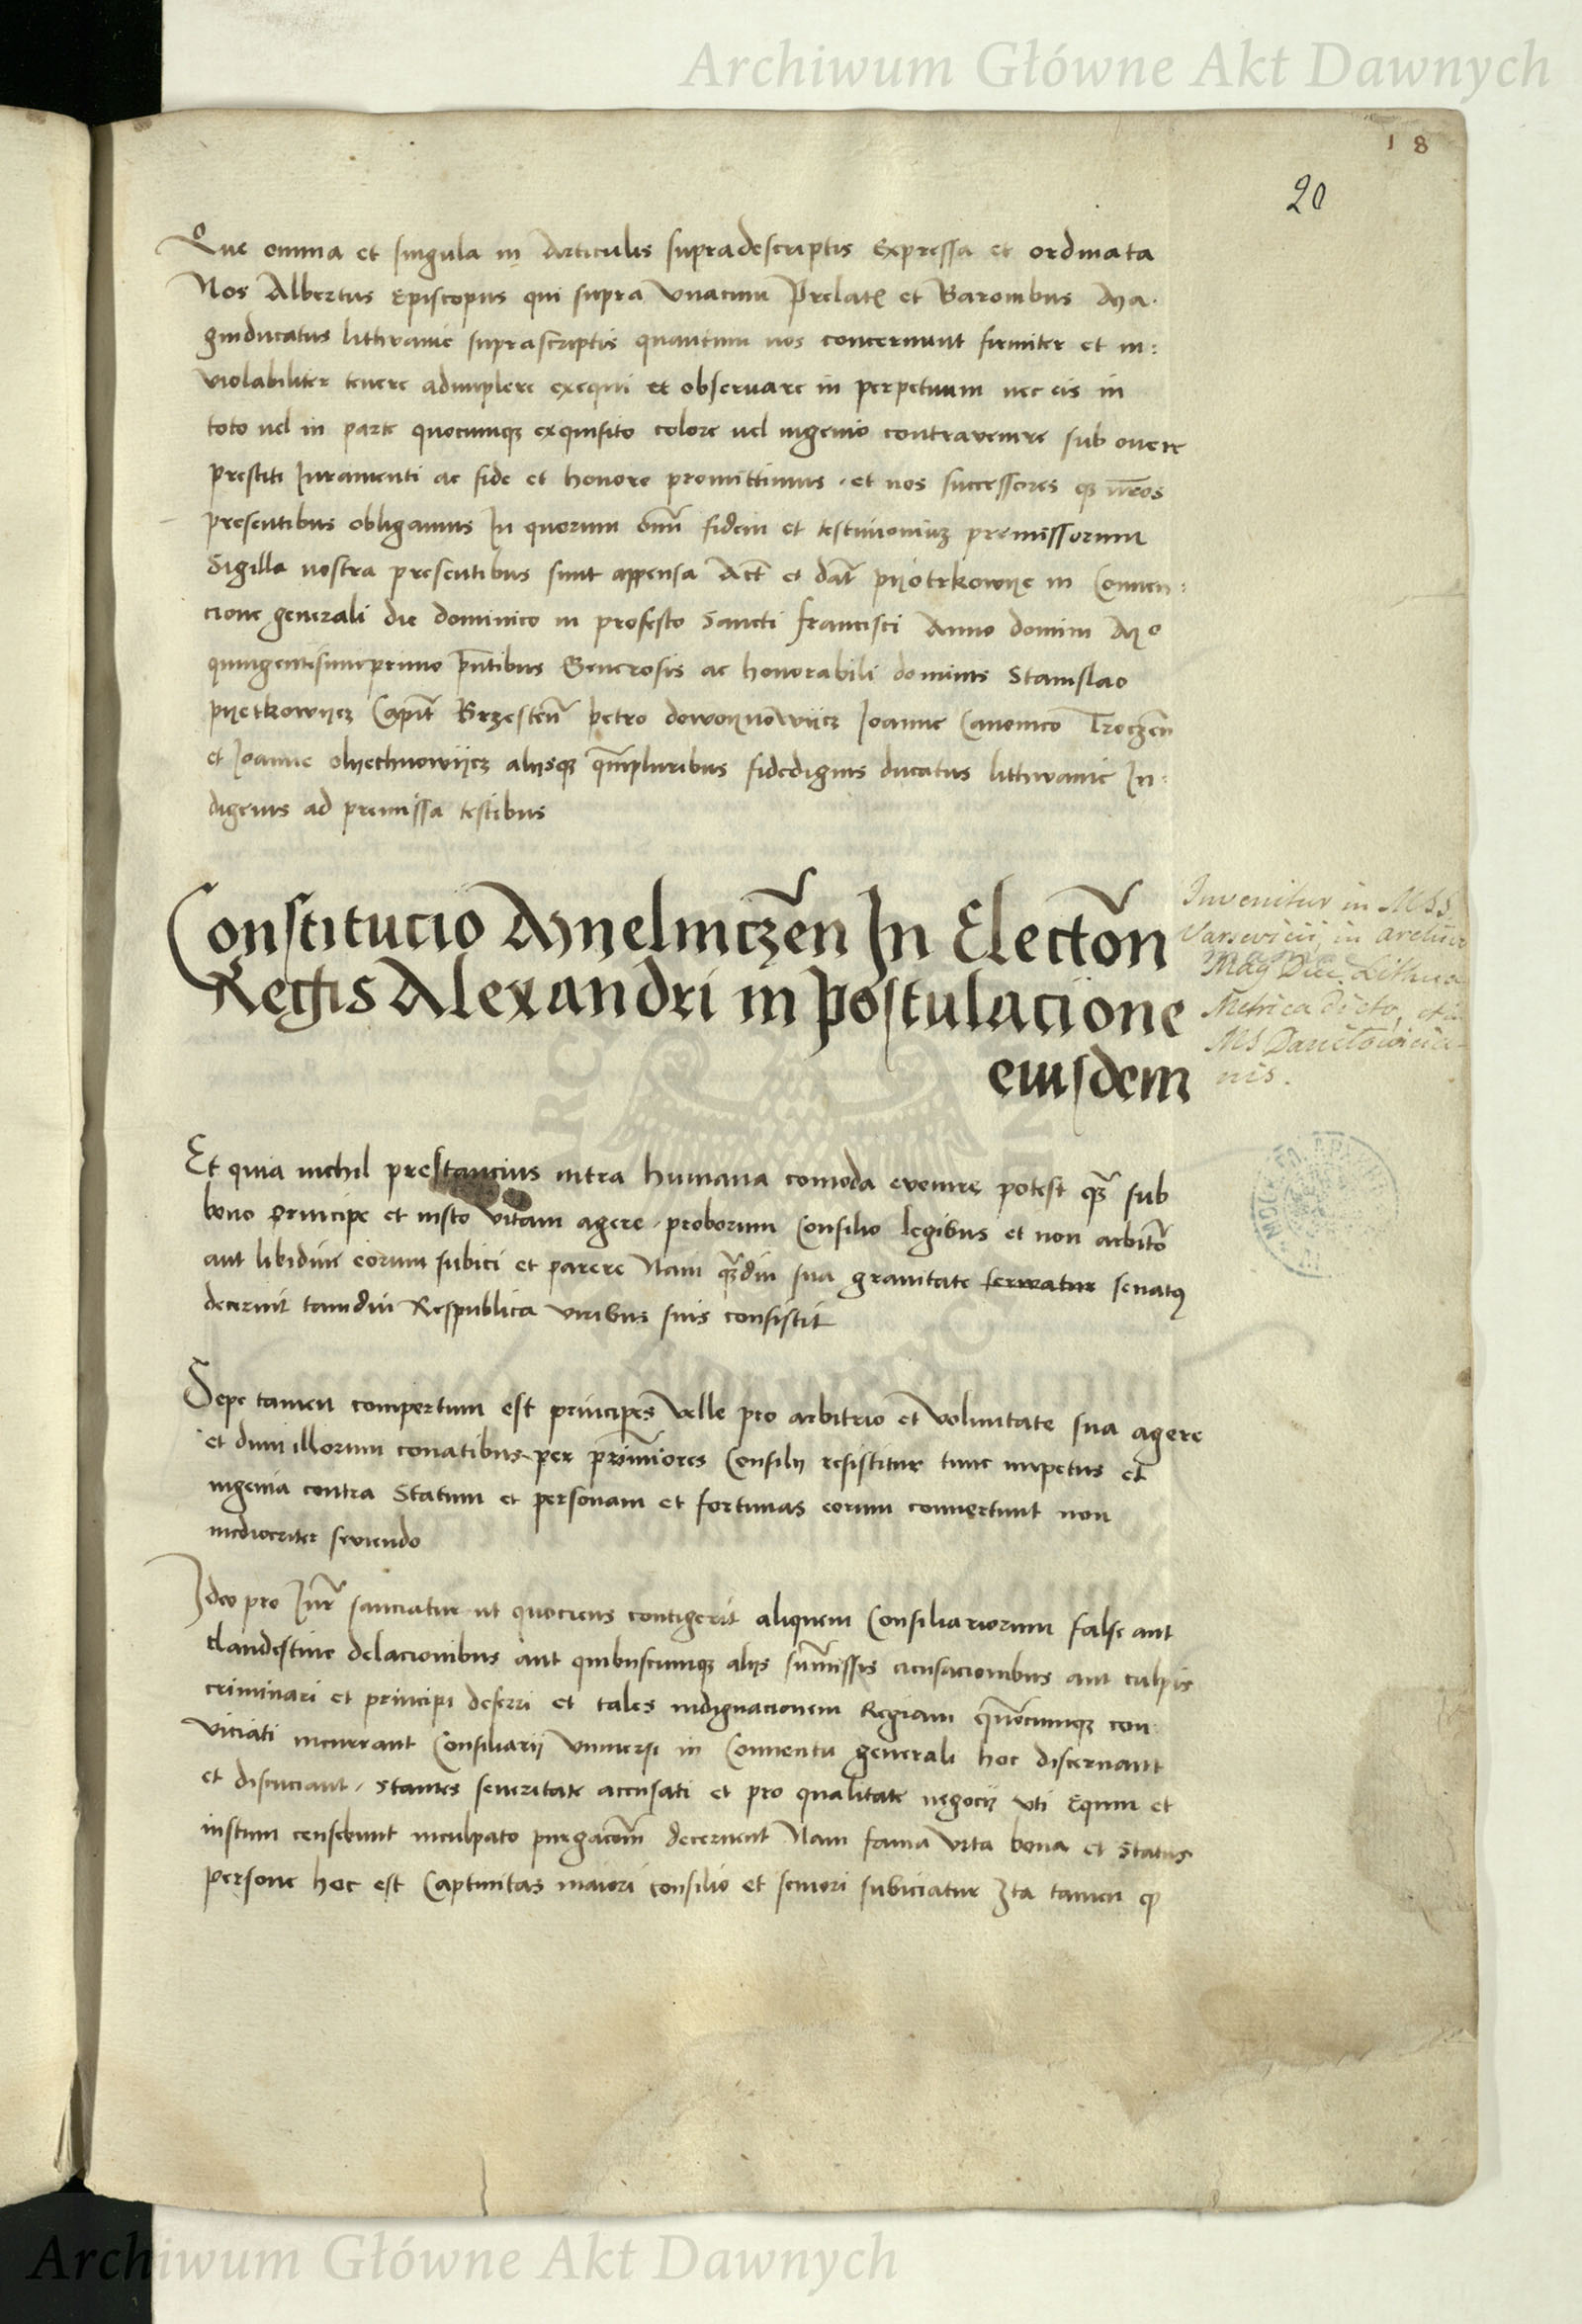 Archiwum Główne Akt Dawnych
18
20
Que omnia et singula in Articulis supradescriptis Expressa et ordinata
Nos Albertus Episcopus qui supra Vnacum Prelatꝭ et Baronibus Ma·
gniducatus litthvanie suprascriptis quantum nos concernunt firmiter et in:
violabiliter tenere adimplere exequi et observare in perpetuum nec eis in
toto vel in parte quocumqꝫ exquisito colore vel ingenio contravenire sub onere
prestiti Iuramenti ac fide et honore promittimus · et nos successores qꝫ nr̄os
presentibus obligamus In quorum om̄i fidem et testimoniuꝫ premissorum
Sigilla nostra presentibus sunt appensa Act̄ et dat̄ pyotrkowye in Conven:
cione generali die dominico in profesto Sancti francisci Anno domini Mᵒ
quingentesimoprimo p̄ntibus Generosis ac honorabili dominis Stanislao
pyetkowycz Capit̄ Brzesten̄ petro dowoynowicz Joanne Canonico Troczen̄
et Joanne olyechnowycz alysqꝫ qm̄pluribus fidedignis ducatus litthvanie In:
digenis ad premissa testibus
Constitucio Myelniczen̄ In Electōn
Regis Alexandri in postulacione
eiusdem
Invenitur in MSS
Varsevicii, in archivo
Mag Duc. Lithua
Metrica dicto, et in
MS
nis.
Et quia nichil prestancius intra humana comoda evenire potest qꝫ̄ sub
bono principe et iusto vitam agere · proborum Consilio legibus et non arbitrō
aut libidini eorum subici et parere Nam qꝫ̄diu sua gravitate servatur senatꝰ
decernit tamdiu Respublica viribus suis consistit
Sepe tamen compertum est principes velle pro arbitrio et voluntate sua agere
et dum illorum conatibus per prim̄iores Consilii resistitur tunc impetus et
ingenia contra Statum et personam et fortunas eorum convertunt non
mediocriter seviendo
Ideo pro Iur̄ sanciatur ut quociens contigerit aliquem Consiliariorum false aut
clandestine delacionibus aut quibuscumqꝫ alys sum̄issis accusacionibus aut culpis
criminari et principi deferri et tales indignacionem Regiam quōcumqꝫ con
viciati incurrant Consiliarii vniversi in Conventu generali hoc discernant
et discuciant · stantes severitate accusati et pro qualitate negocii vti Equm et
iustum censebunt inculpato purgacōm̄ decernent Nam fama vita bona et Status
persone hoc est Captivitas maiori consilio et seniori subiciatur Ita tamen ꝙ
Archiwum Główne Akt Dawnych